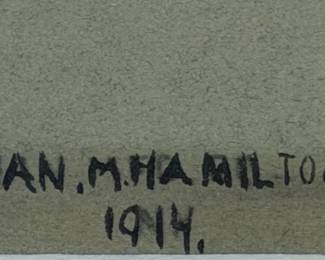 AN.M.HAMILTO
1914.